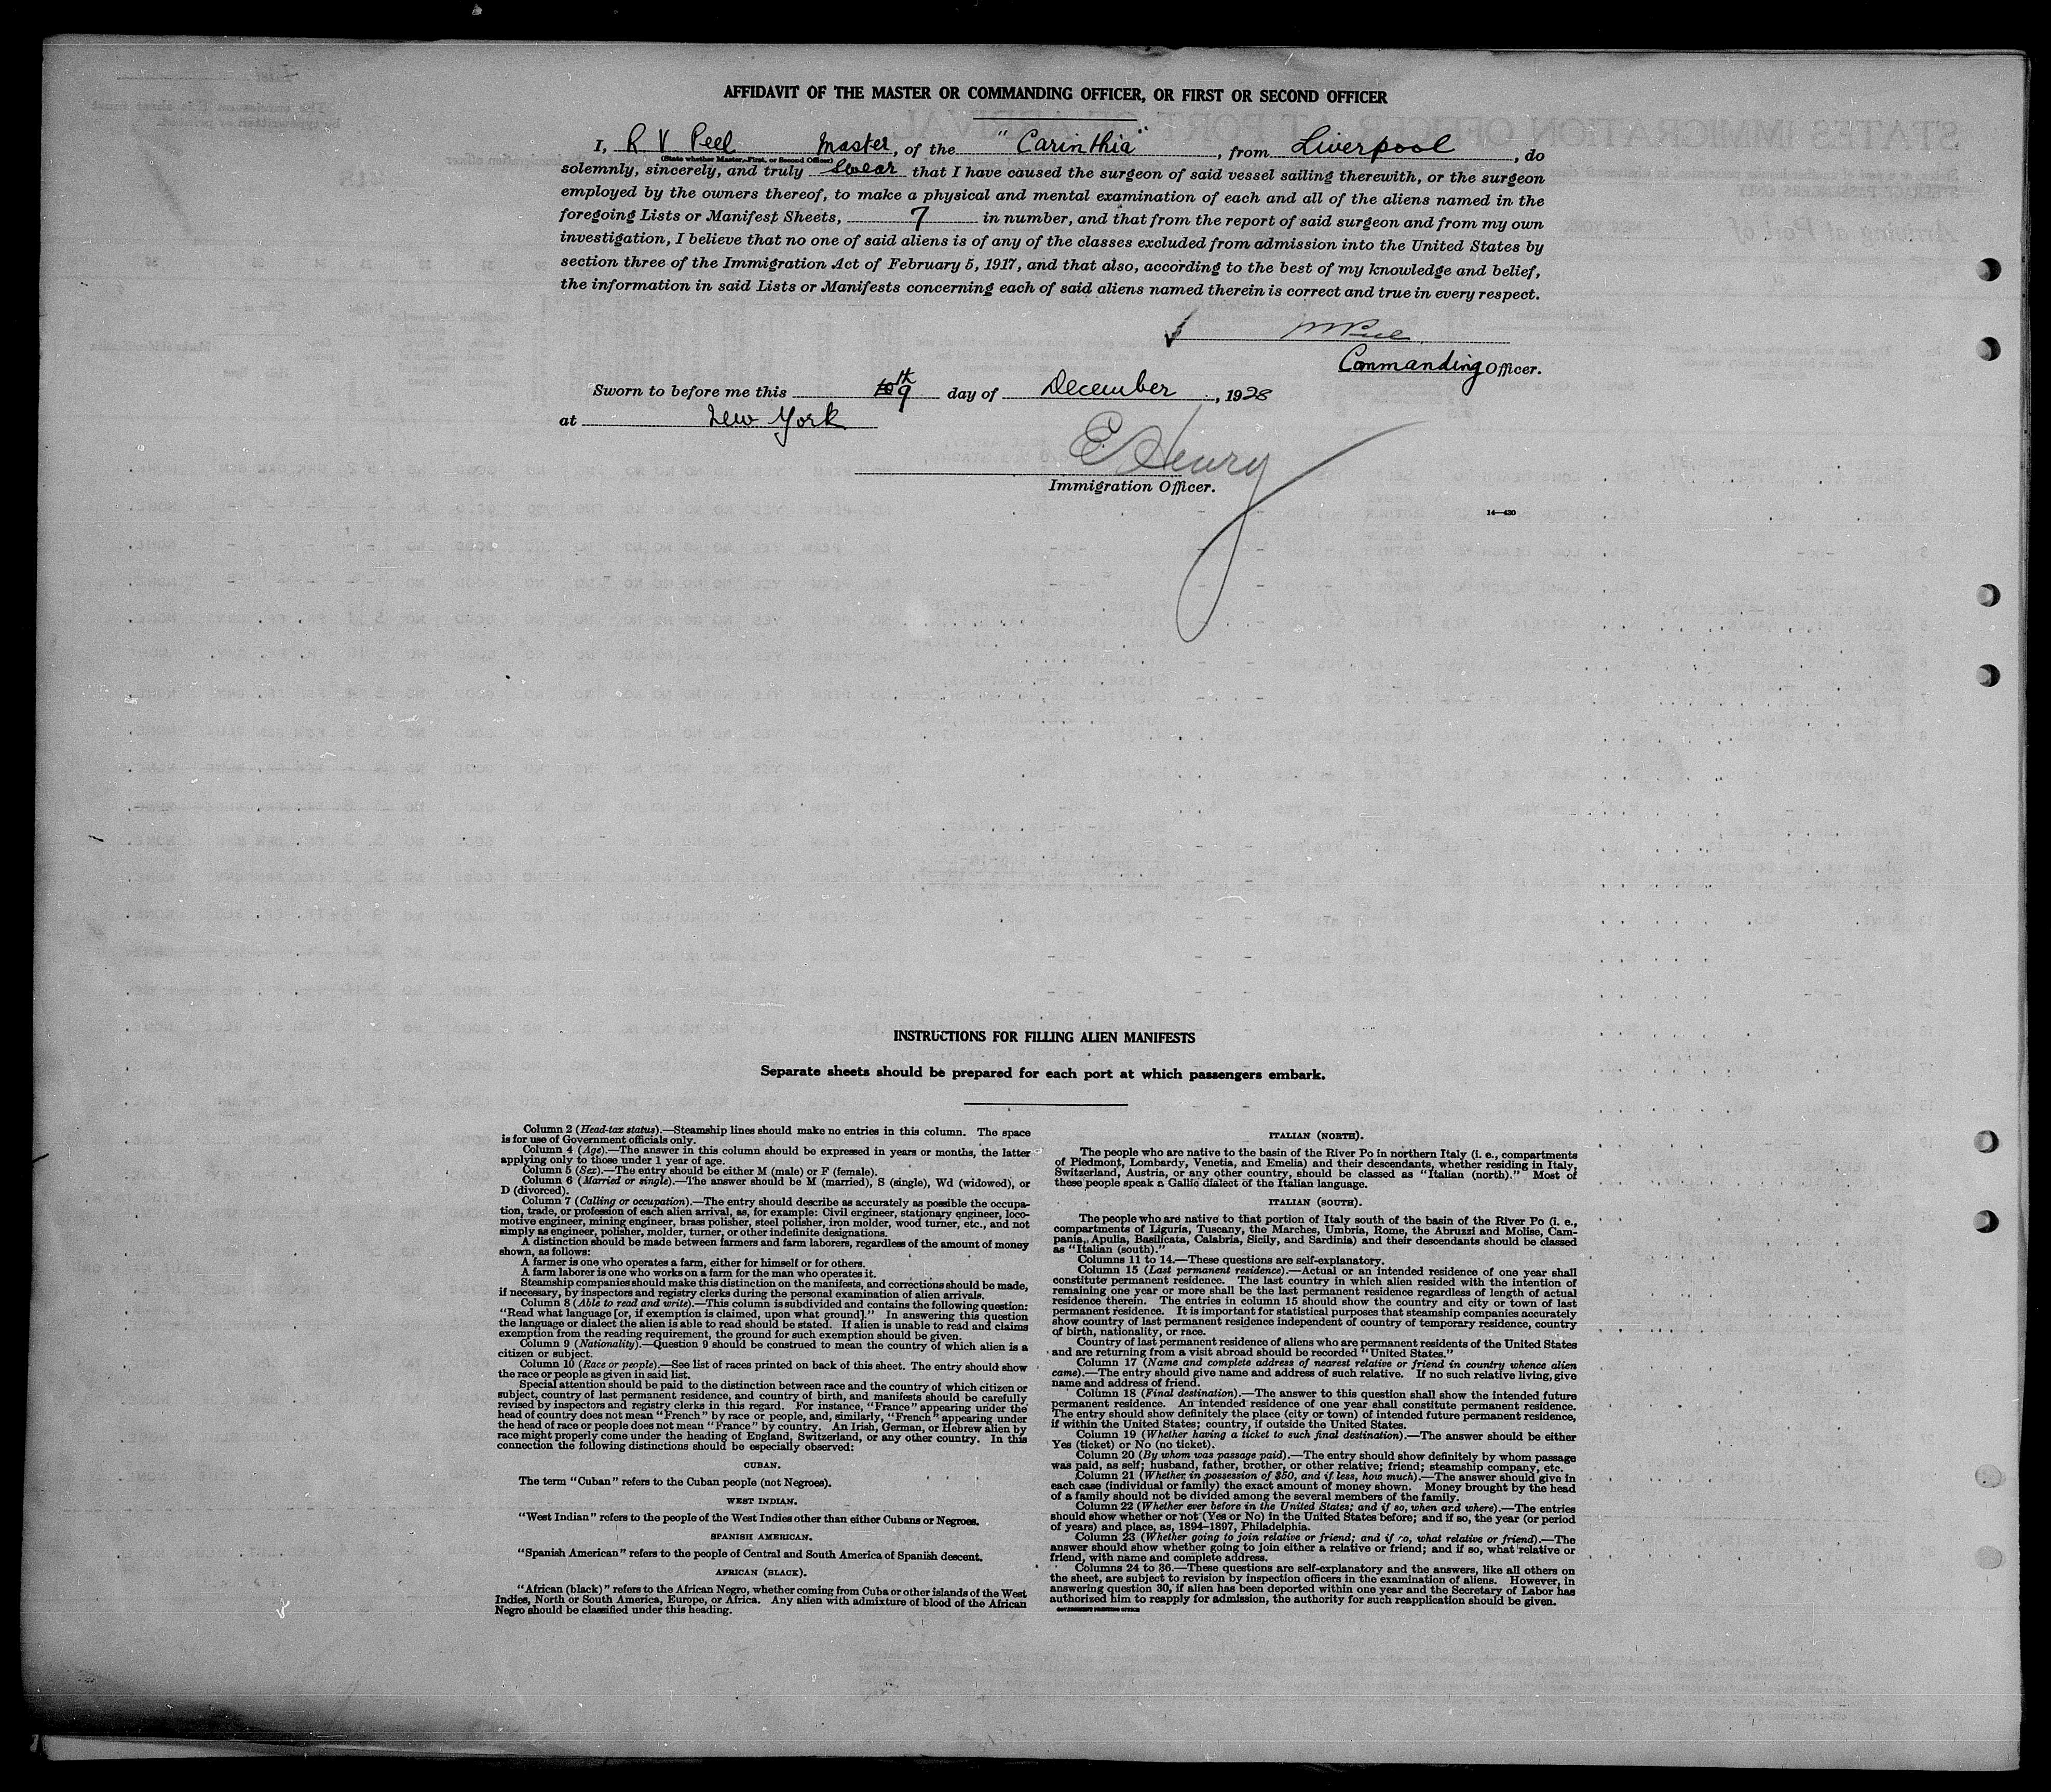 AFFIDAVIT OF THE MASTER OR COMMANDING OFFICER, OR FIRST OR SECOND OFFICER
I, R V Peel Master, of the "Carinthia", from Liverpool, do
(State whether Master, First, or Second Officer)
solemnly, sincerely, and truly swear that I have caused the surgeon of said vessel sailing therewith, or the surgeon
employed by the owners thereof, to make a physical and mental examination of each and all of the aliens named in the
foregoing Lists or Manifest Sheets, 7 in number, and that from the report of said surgeon and from my own
investigation, I believe that no one of said aliens is of any of the classes excluded from admission into the United States by
section three of the Immigration Act of February 5, 1917, and that also, according to the best of my knowledge and belief,
the information in said Lists or Manifests concerning each of said aliens named therein is correct and true in every respect.
Commanding Officer.
Sworn to before me this 9th day of December, 1928
at New York
E Henry
Immigration Officer.
14—430
INSTRUCTIONS FOR FILLING ALIEN MANIFESTS
Separate sheets should be prepared for each port at which passengers embark.
Column 2 (Head-tax status).—Steamship lines should make no entries in this column. The space
is for use of Government officials only.
Column 4 (Age).—The answer in this column should be expressed in years or months, the latter
applying only to those under 1 year of age.
Column 5 (Sex).—The entry should be either M (male) or F (female).
Column 6 (Married or single).—The answer should be M (married), S (single), Wd (widowed), or
D (divorced).
Column 7 (Calling or occupation).—The entry should describe as accurately as possible the occupa-
tion, trade, or profession of each alien arrival, as, for example: Civil engineer, stationary engineer, loco-
motive engineer, mining engineer, brass polisher, steel polisher, iron molder, wood turner, etc., and not
simply as engineer, polisher, molder, turner, or other indefinite designations.
A distinction should be made between farmers and farm laborers, regardless of the amount of money
shown, as follows:
A farmer is one who operates a farm, either for himself or for others.
A farm laborer is one who works on a farm for the man who operates it.
Steamship companies should make this distinction on the manifests, and corrections should be made,
if necessary, by inspectors and registry clerks during the personal examination of alien arrivals.
Column 8 (Able to read and write).—This column is subdivided and contains the following question:
"Read what language [or, if exemption is claimed, upon what ground]." In answering this question
the language or dialect the alien is able to read should be stated. If alien is unable to read and claims
exemption from the reading requirement, the ground for such exemption should be given.
Column 9 (Nationality).—Question 9 should be construed to mean the country of which alien is a
citizen or subject.
Column 10 (Race or people).—See list of races printed on back of this sheet. The entry should show
the race or people as given in said list.
Special attention should be paid to the distinction between race and the country of which citizen or
subject, country of last permanent residence, and country of birth, and manifests should be carefully
revised by inspectors and registry clerks in this regard. For instance, "France" appearing under the
head of country does not mean "French" by race or people, and, similarly, "French" appearing under
the head of race or people does not mean "France" by country. An Irish, German, or Hebrew alien by
race might properly come under the heading of England, Switzerland, or any other country. In this
connection the following distinctions should be especially observed:
CUBAN.
The term "Cuban" refers to the Cuban people (not Negroes).
WEST INDIAN.
"West Indian" refers to the people of the West Indies other than either Cubans or Negroes.
SPANISH AMERICAN.
"Spanish American" refers to the people of Central and South America of Spanish descent.
AFRICAN (BLACK).
"African (black)" refers to the African Negro, whether coming from Cuba or other islands of the West
Indies, North or South America, Europe, or Africa. Any alien with admixture of blood of the African
Negro should be classified under this heading.
ITALIAN (NORTH).
The people who are native to the basin of the River Po in northern Italy (i. e., compartments
of Piedmont, Lombardy, Venetia, and Emelia) and their descendants, whether residing in Italy,
Switzerland, Austria, or any other country, should be classed as "Italian (north)." Most of
these people speak a Gallic dialect of the Italian language.
ITALIAN (SOUTH).
The people who are native to that portion of Italy south of the basin of the River Po (i. e.,
compartments of Liguria, Tuscany, the Marches, Umbria, Rome, the Abruzzi and Molise, Cam-
pania, Apulia, Basilicata, Calabria, Sicily, and Sardinia) and their descendants should be classed
as "Italian (south)."
Columns 11 to 14.—These questions are self-explanatory.
Column 15 (Last permanent residence).—Actual or an intended residence of one year shall
constitute permanent residence. The last country in which alien resided with the intention of
remaining one year or more shall be the last permanent residence regardless of length of actual
residence therein. The entries in column 15 should show the country and city or town of last
permanent residence. It is important for statistical purposes that steamship companies accurately
show country of last permanent residence independent of country of temporary residence, country
of birth, nationality, or race.
Country of last permanent residence of aliens who are permanent residents of the United States
and are returning from a visit abroad should be recorded "United States."
Column 17 (Name and complete address of nearest relative or friend in country whence alien
came).—The entry should give name and address of such relative. If no such relative living, give
name and address of friend.
Column 18 (Final destination).—The answer to this question shall show the intended future
permanent residence. An intended residence of one year shall constitute permanent residence.
The entry should show definitely the place (city or town) of intended future permanent residence,
if within the United States; country, if outside the United States.
Column 19 (Whether having a ticket to such final destination).—The answer should be either
Yes (ticket) or No (no ticket).
Column 20 (By whom was passage paid).—The entry should show definitely by whom passage
was paid, as self; husband, father, brother, or other relative; friend; steamship company, etc.
Column 21 (Whether in possession of $50, and if less, how much).—The answer should give in
each case (individual or family) the exact amount of money shown. Money brought by the head
of a family should not be divided among the several members of the family.
Column 22 (Whether ever before in the United States; and if so, when and where).—The entries
should show whether or not (Yes or No) in the United States before; and if so, the year (or period
of years) and place, as, 1894–1897, Philadelphia.
Column 23 (Whether going to join relative or friend; and if so, what relative or friend).—The
answer should show whether going to join either a relative or friend; and if so, what relative or
friend, with name and complete address.
Columns 24 to 36.—These questions are self-explanatory and the answers, like all others on
the sheet, are subject to revision by inspection officers in the examination of aliens. However, in
answering question 30, if alien has been deported within one year and the Secretary of Labor has
authorized him to reapply for admission, the authority for such reapplication should be given.
GOVERNMENT PRINTING OFFICE